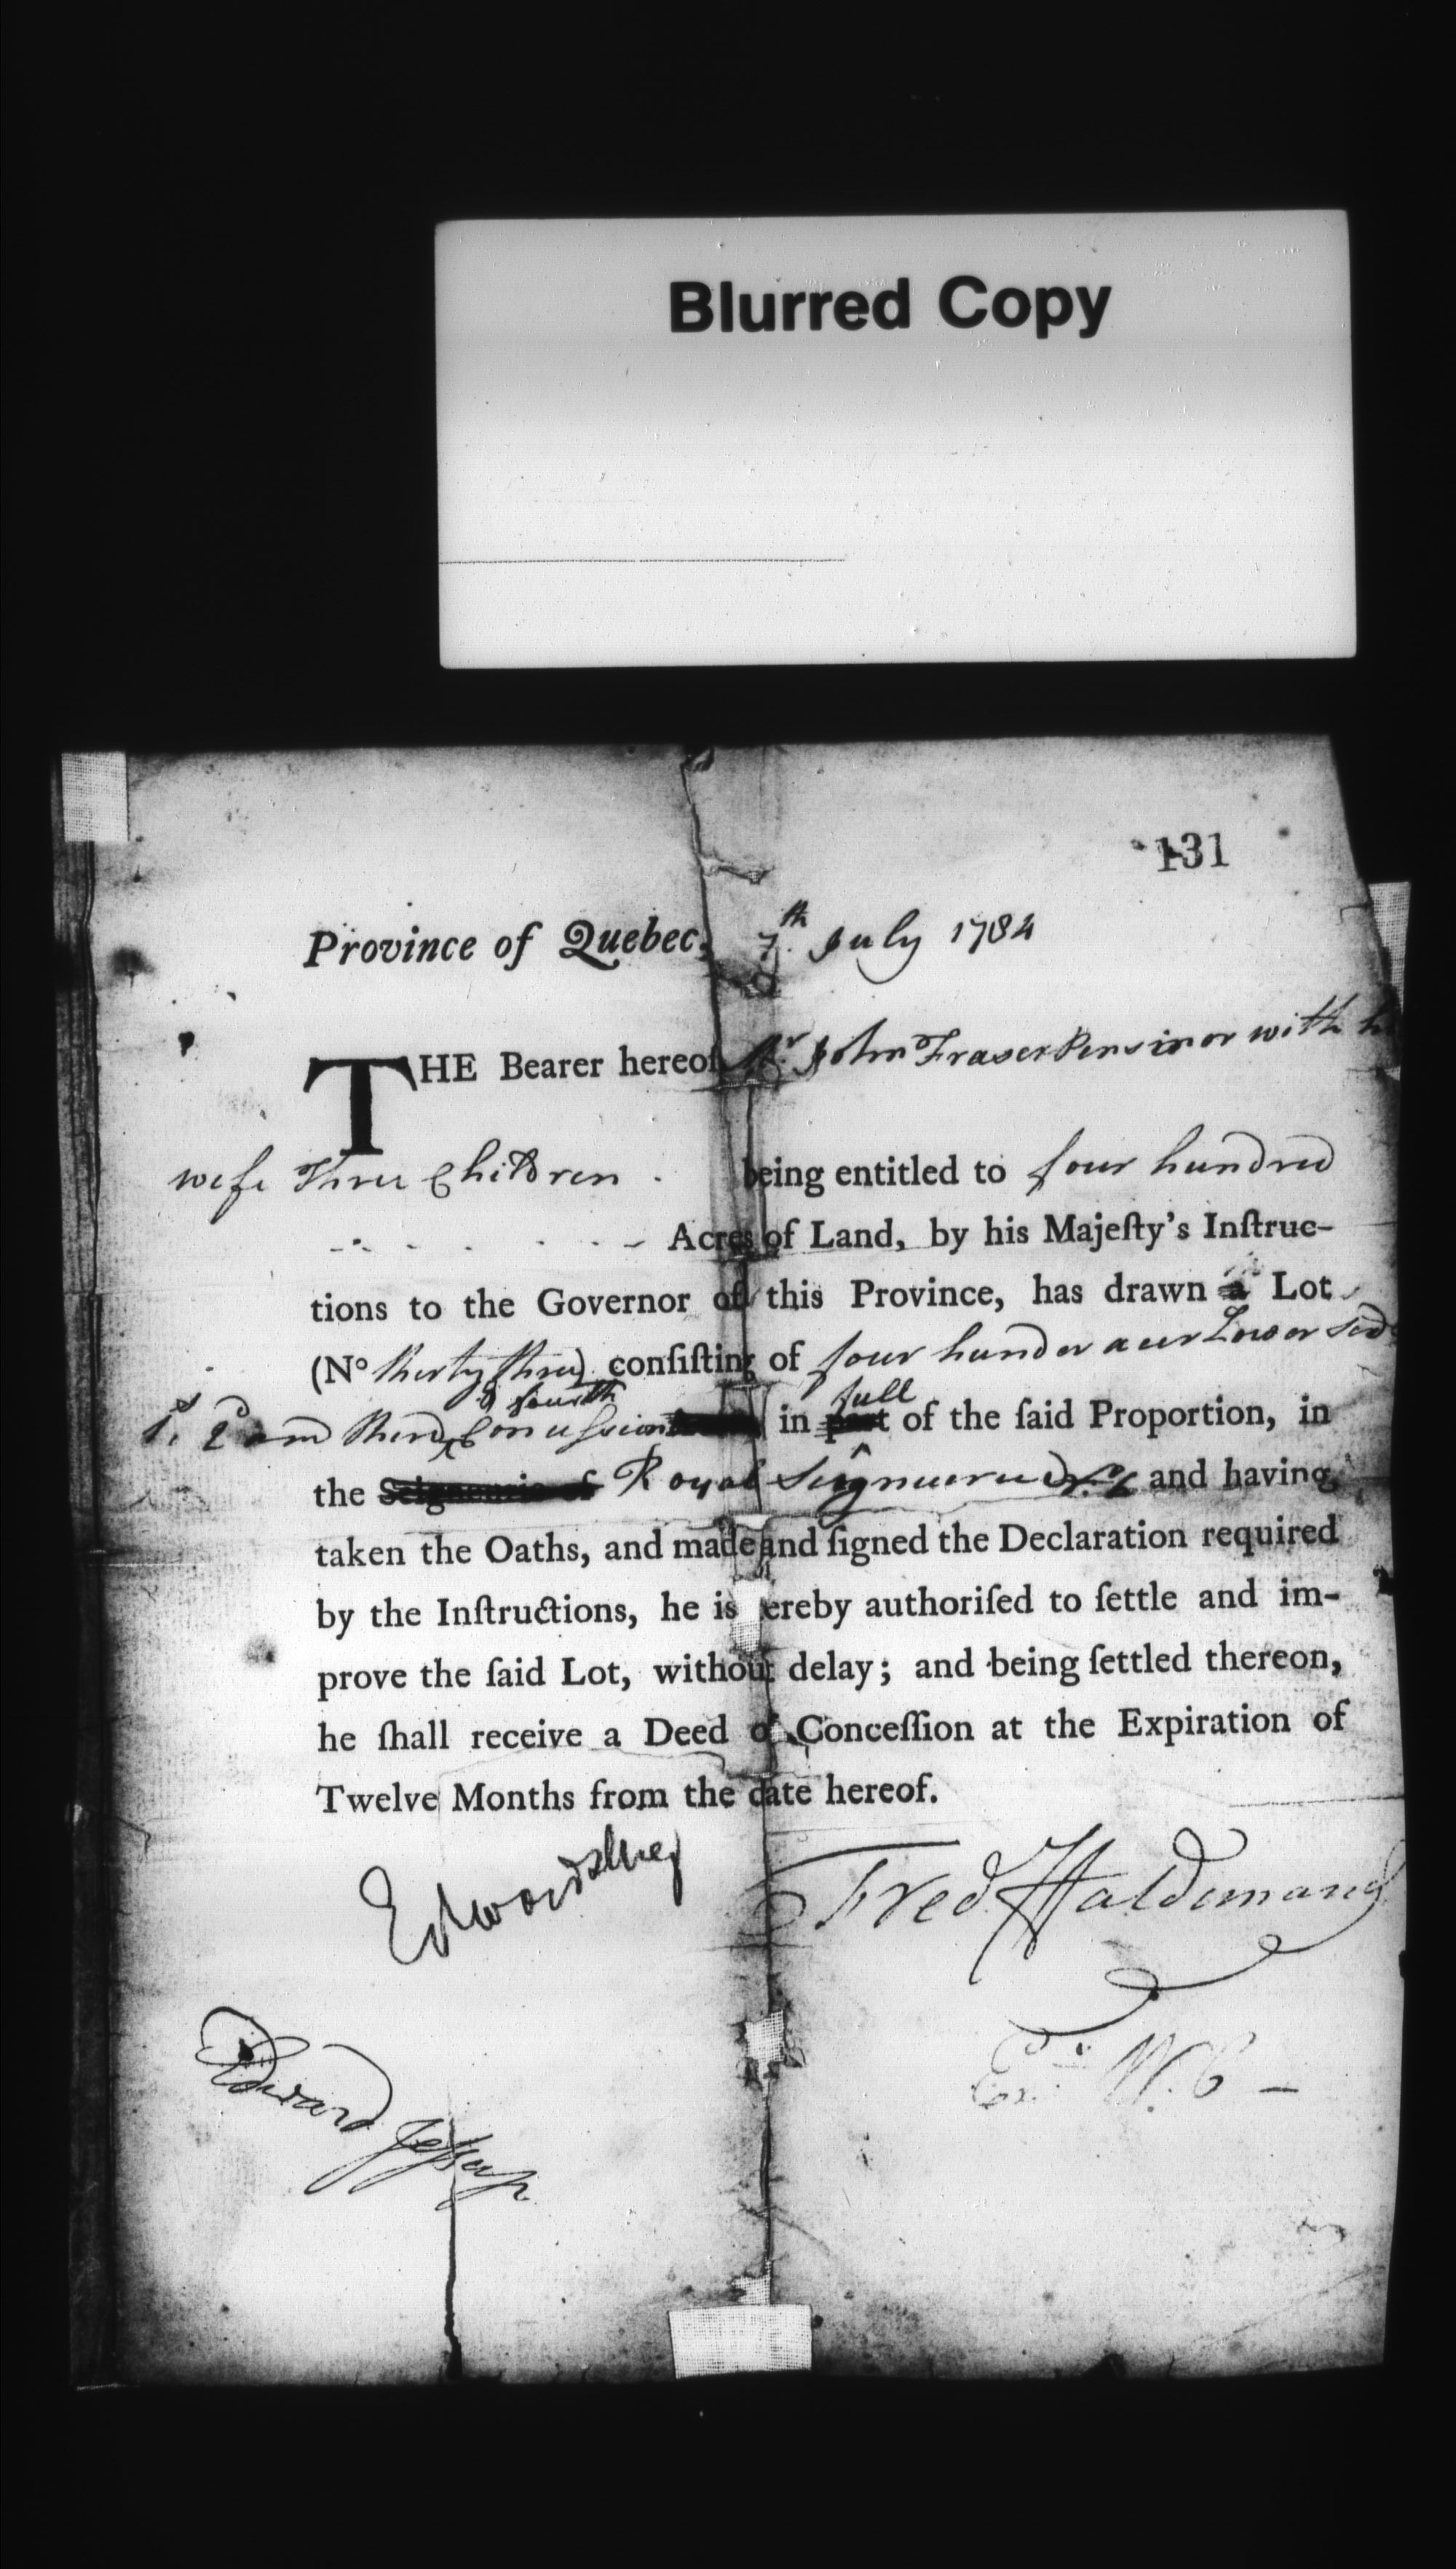 Blurred Copy
131
Province of Quebec, 7.th July 1784
THE Bearer hereof Mr John Fraser Pensinor with
wife Three Children . being entitled to four hundred
Acres of Land, by his Majeſty's Inſtruc-
tions to the Governor of this Province, has drawn a Lot
(No thirty three) conſiſting of four hunder Lower
& fourth full
1st 2d and third Concussion in part of the ſaid Proportion, in
the Seigneurie of Royal and having
taken the Oaths, and made and ſigned the Declaration required
by the Inſtructions, he is ereby authoriſed to ſettle and im-
prove the ſaid Lot, without delay; and being ſettled thereon,
he ſhall receive a Deed of Conceſſion at the Expiration of
Twelve Months from the date hereof.
Fred: Haldimand
Edward Jeſsup
Ex. W. C –